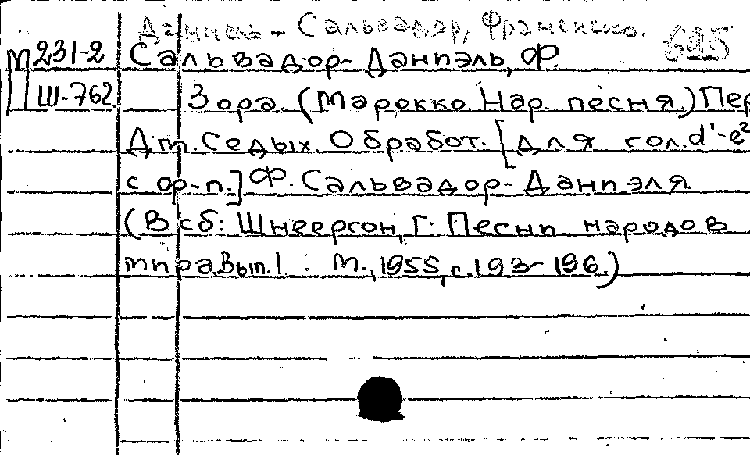 Даниель - Сальвадор, Франсиско.
М 231-2 Сальвадор-Даниэль, Ф.
Ш-762 Зора. (Марокко Нар. песня.) Пер
Дм. Седых. Обработ. [для гол. d'-e²
с ор-п.] Ф. Сальвадор-Даниэля
(В сб: Шнеерсон, Г. Песни народов
мира Вып. I. М., 1955, с. 193-196.)